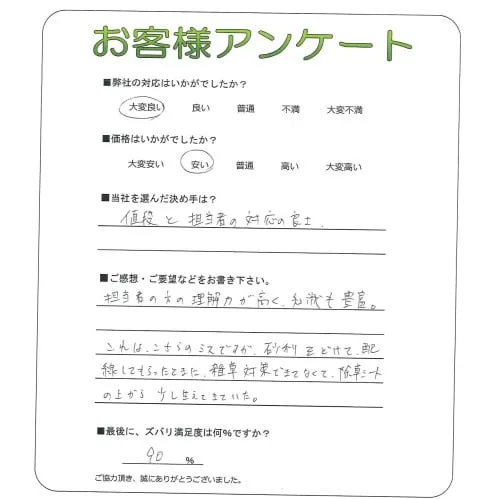 お客様アンケート
■弊社の対応はいかがでしたか？
大変良い 良い 普通 不満 大変不満
■価格はいかがでしたか？
大変安い 安い 普通 高い 大変高い
■当社を選んだ決め手は？
値段と担当者の対応の良さ．
■ご感想・ご要望などをお書き下さい。
担当者の方の理解力が高く、知識も豊富。
これは、こちらのミスですが、砂利をどけて、配
線してもらったときに、雑草対策できてなくて、除草シート
の上から少し生えてきていた。
■最後に、ズバリ満足度は何％ですか？
90 ％
ご協力頂き、誠にありがとうございました。